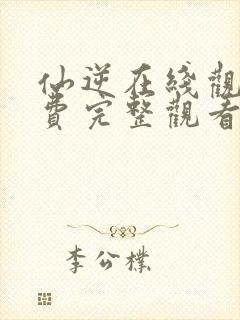 仙逆在綫觀
費完整觀看
李公樸